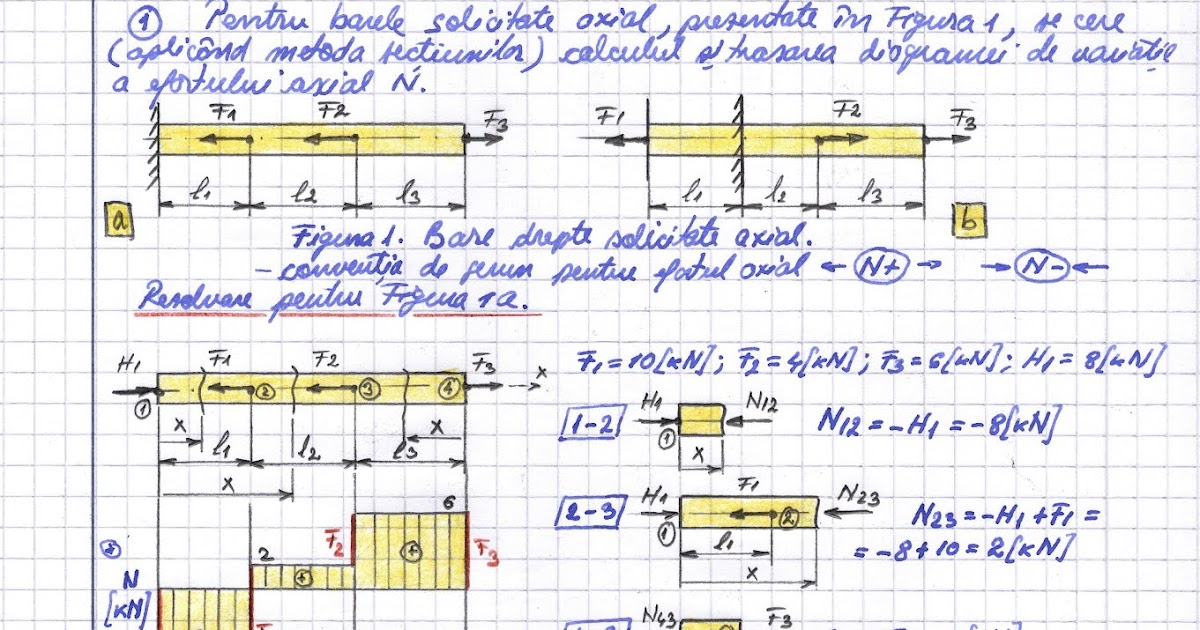 ① Pentru barele solicitate axial, prezentate în Figura 1, se cere
(aplicând metoda secțiunilor) calculul și trasarea diagramei de variație
a efortului axial N.
F1 F2 F3 F1 F2 F3
l1 l2 l3 l1 l2 l3
a b
Figura 1. Bare drepte solicitate axial.
- convenția de semn pentru efortul axial ← N+ → → N- ←
Rezolvare pentru Figura 1a.
H1 F1 F2 F3 x
F1 = 10 [kN]; F2 = 4 [kN]; F3 = 6 [kN]; H1 = 8 [kN]
① ② ③ ④
x l1 l2 l3 x
x
1-2 H1 ① N12 x N12 = -H1 = -8 [kN]
2-3 H1 ① F1 ② N23 N23 = -H1 + F1 =
l1 = -8 + 10 = 2 [kN]
x
6
2 F2 + F3
+
N
[kN]
N43 F3